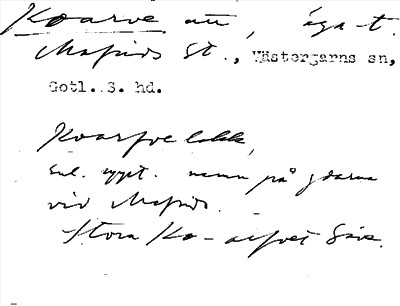 Koarve au, äga t.
Mafrids St., Västergarns sn,
Gotl. S. hd.
Koarfve lakk,
enl. uppt. namn på gdarna
vid Mafrids.
Stora Ko-arfvet Säve.